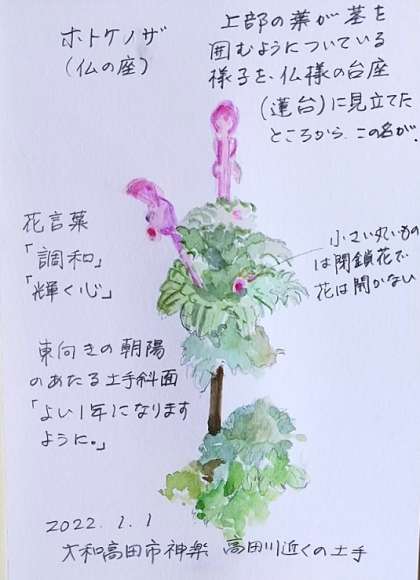 ホトケノザ
(仏の座)
上部の葉が茎を
囲むようについている
様子を、仏様の台座
(蓮台)に見立てた
ところから、この名が.
花言葉
「調和」
「輝く心」
小さい丸いもの
は閉鎖花で
花は開かない
東向きの朝陽
のあたる土手斜面
「よい1年になります
ように。」
2022.1.1
大和高田市神楽 高田川近くの土手